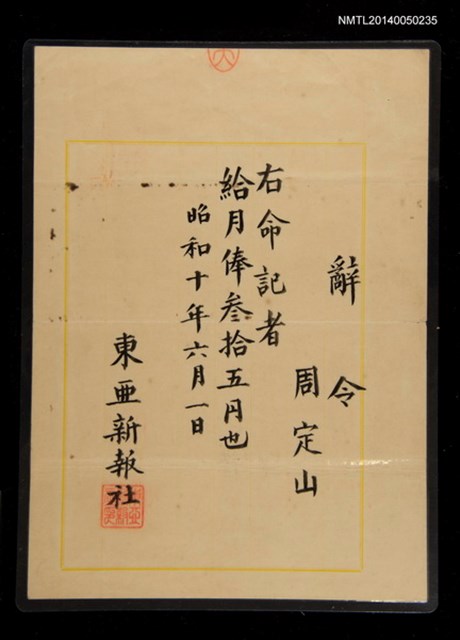 NMTL20140050235
辭令
周定山
右命記者
給月俸叁拾五円也
昭和十年六月一日
東亜新報社